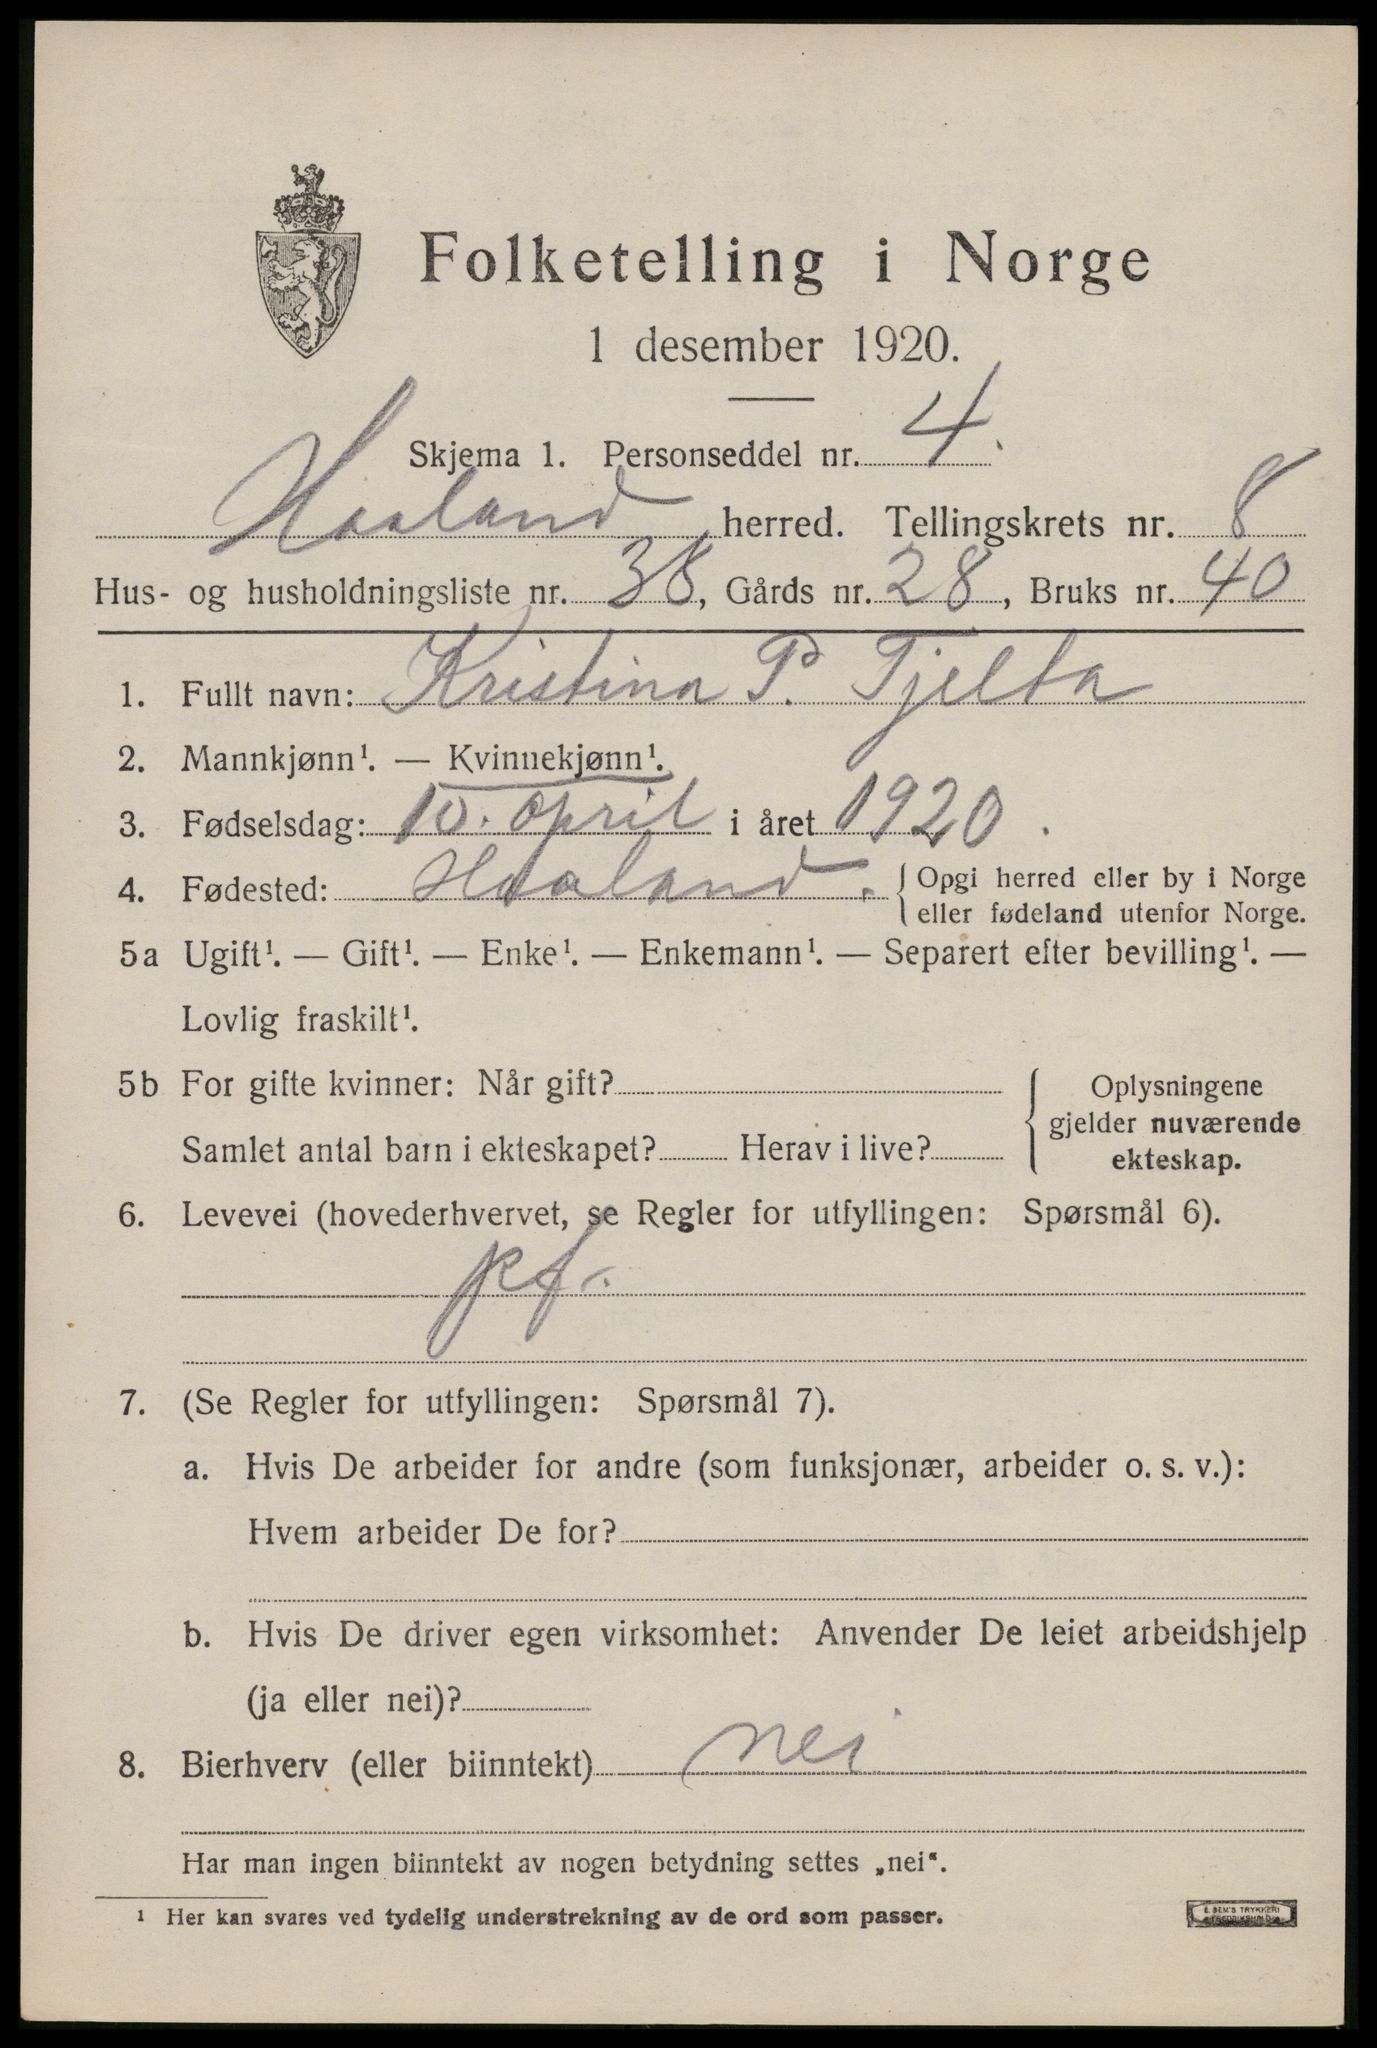 Folketelling i Norge
1 desember 1920.
Skjema 1. Personseddel nr. 4.
Haaland herred. Tellingskrets nr. 8
Hus- og husholdningsliste nr. 38, Gårds nr. 28, Bruks nr. 40
1. Fullt navn: Kristina P. Tjelta
2. Mannkjønn¹. — Kvinnekjønn¹.
3. Fødselsdag: 10. april i året 1920.
4. Fødested: Haaland. { Opgi herred eller by i Norge
eller fødeland utenfor Norge.
5a Ugift¹. — Gift¹. — Enke¹. — Enkemann¹. — Separert efter bevilling¹. —
Lovlig fraskilt¹.
5b For gifte kvinner: Når gift?
Samlet antal barn i ekteskapet? Herav i live?
{ Oplysningene
gjelder nuværende
ekteskap.
6. Levevei (hovederhvervet, se Regler for utfyllingen: Spørsmål 6).
pf.
7. (Se Regler for utfyllingen: Spørsmål 7).
a. Hvis De arbeider for andre (som funksjonær, arbeider o. s. v.):
Hvem arbeider De for?
b. Hvis De driver egen virksomhet: Anvender De leiet arbeidshjelp
(ja eller nei)?
8. Bierhverv (eller biinntekt) nei
Har man ingen biinntekt av nogen betydning settes „nei“.
¹ Her kan svares ved tydelig understrekning av de ord som passer.
E. SEM'S TRYKKERI
FREDRIKSHALD